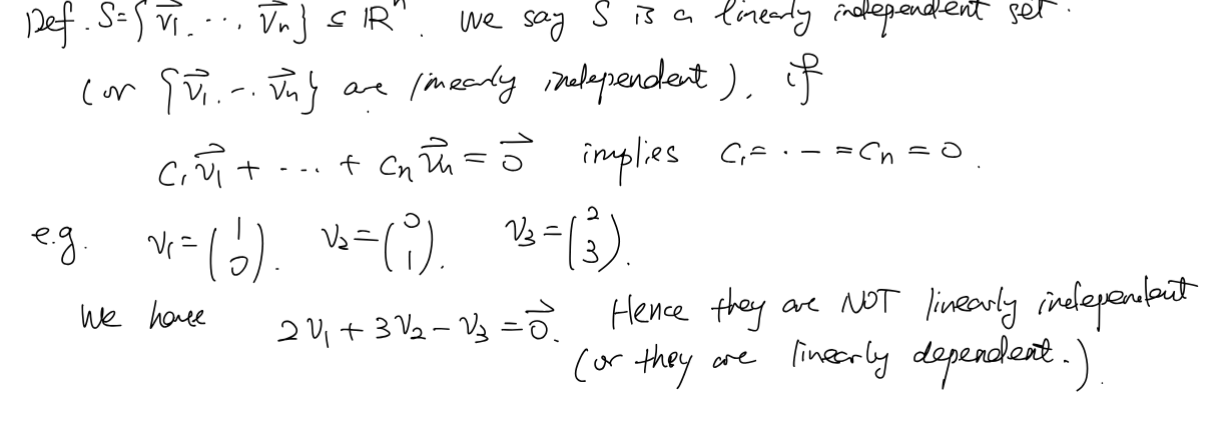 Def. S={v⃗₁. ⋯, v⃗ₙ} ⊆ ℝⁿ. We say S is a linearly independent set.
(or {v⃗₁. ⋯ v⃗ₙ} are linearly independent), if
c₁v⃗₁ + ⋯ + cₙv⃗ₙ = 0⃗ implies c₁= ⋯ =cₙ = 0.
e.g. v₁=(1 0). v₂=(0 1). v₃=(2 3).
We have 2v₁ + 3v₂ − v₃ = 0⃗. Hence they are NOT linearly independent
(or they are linearly dependent.).